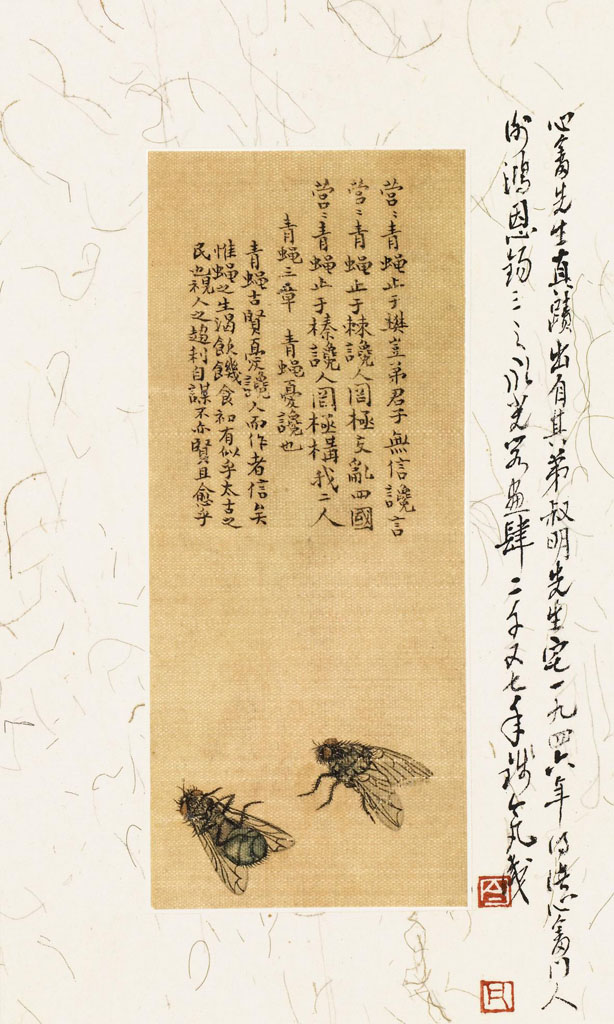 心畬先生真蹟出自其弟叔明先生宅一九四六年心畬門人
鴻恩錫三之畫肆二千又七年
營〻青蠅止于樊豈弟君子無信讒言
營〻青蠅止于棘讒人罔極交亂四國
營〻青蠅止于榛讒人罔極構我二人
青蠅三章 青蠅憂讒也
青蠅古賢憂讒人而作者信矣
惟蠅之生渴飲饑食初有似乎太古之
民也視人之趨利自謀不亦賢且愈乎